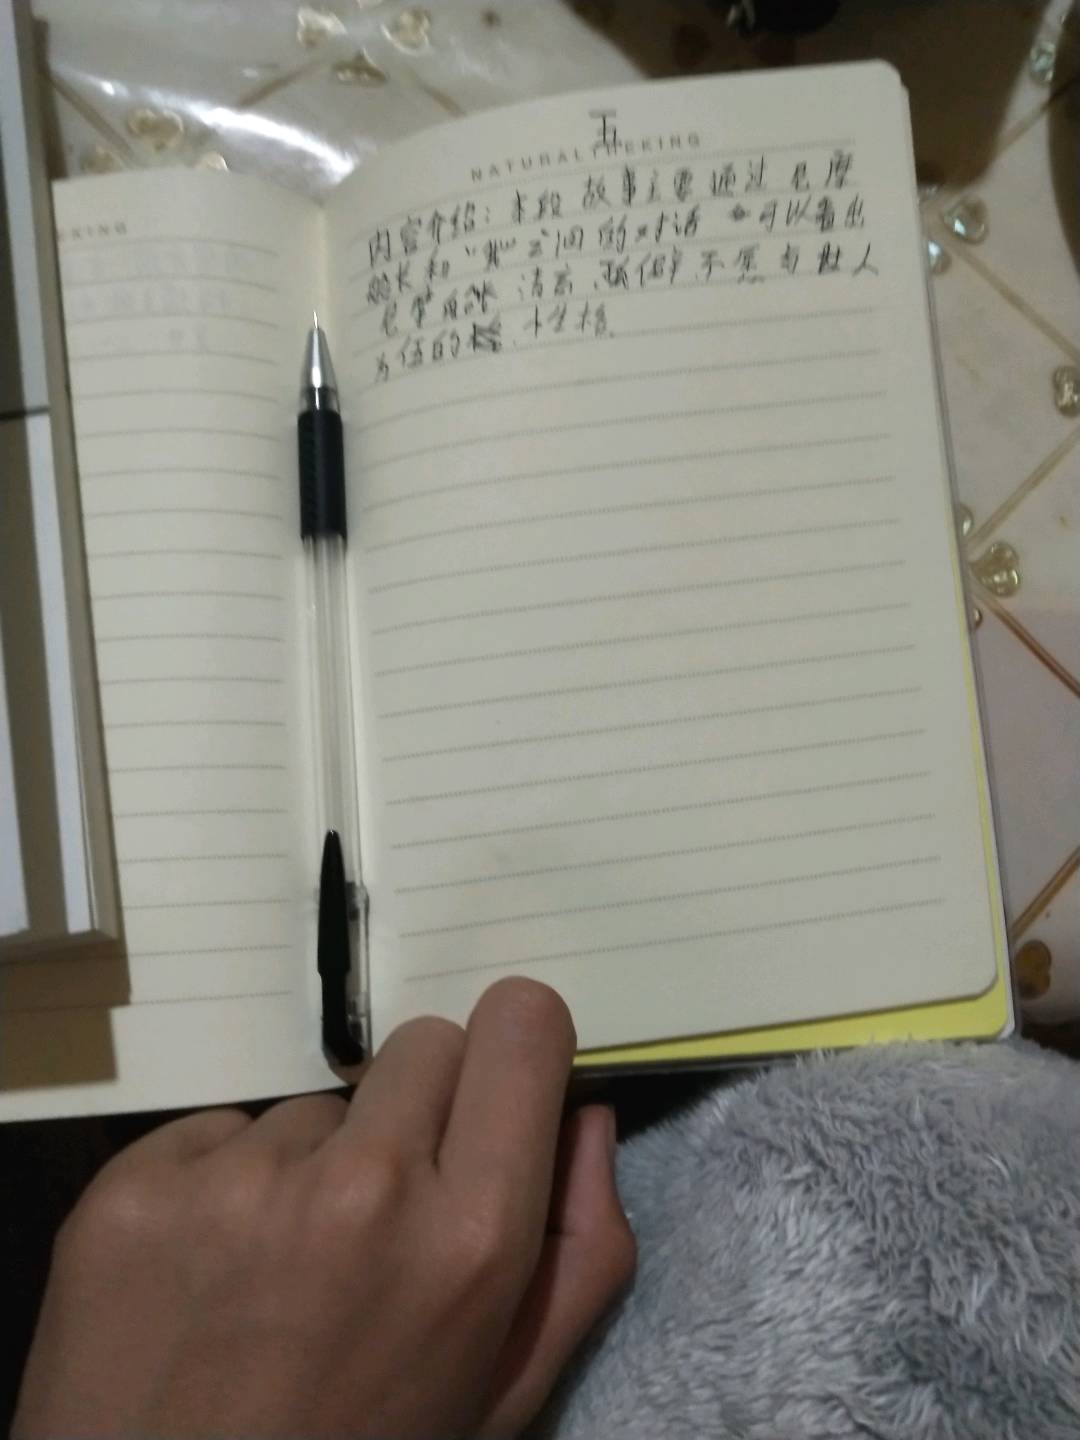 五
NATURAL THEKING
EKING
内容介绍：本段故事主要通过尼摩
船长和“我”之间的对话 可以看出
尼摩船长 清高、孤僻、不愿与世人
为伍的 性格.